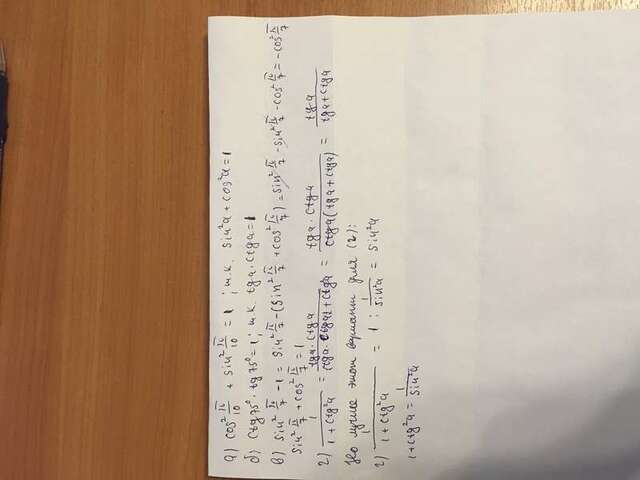 а) cos² π/10 + sin² π/10 = 1 ; т.к. sin²a + cos²a = 1
б) ctg 75° · tg 75° = 1 ; т.к. tg a · ctg a = 1
в) sin² π/7 - 1 = sin² π/7 - (sin² π/7 + cos² π/7) = sin² π/7 - sin² π/7 - cos² π/7 = - cos² π/7
sin² π/7 + cos² π/7 = 1
г) 1/(1 + ctg²a) = (tg a · ctg a)/(ctg a · tg a + ctg²a) = (tg a · ctg a)/(ctg a (tg a + ctg a)) = tg a/(tg a + ctg a)
Но лучше этот вариант для (г):
г) 1/(1 + ctg²a) = 1 : 1/sin²a = sin²a
1 + ctg²a = 1/sin²a